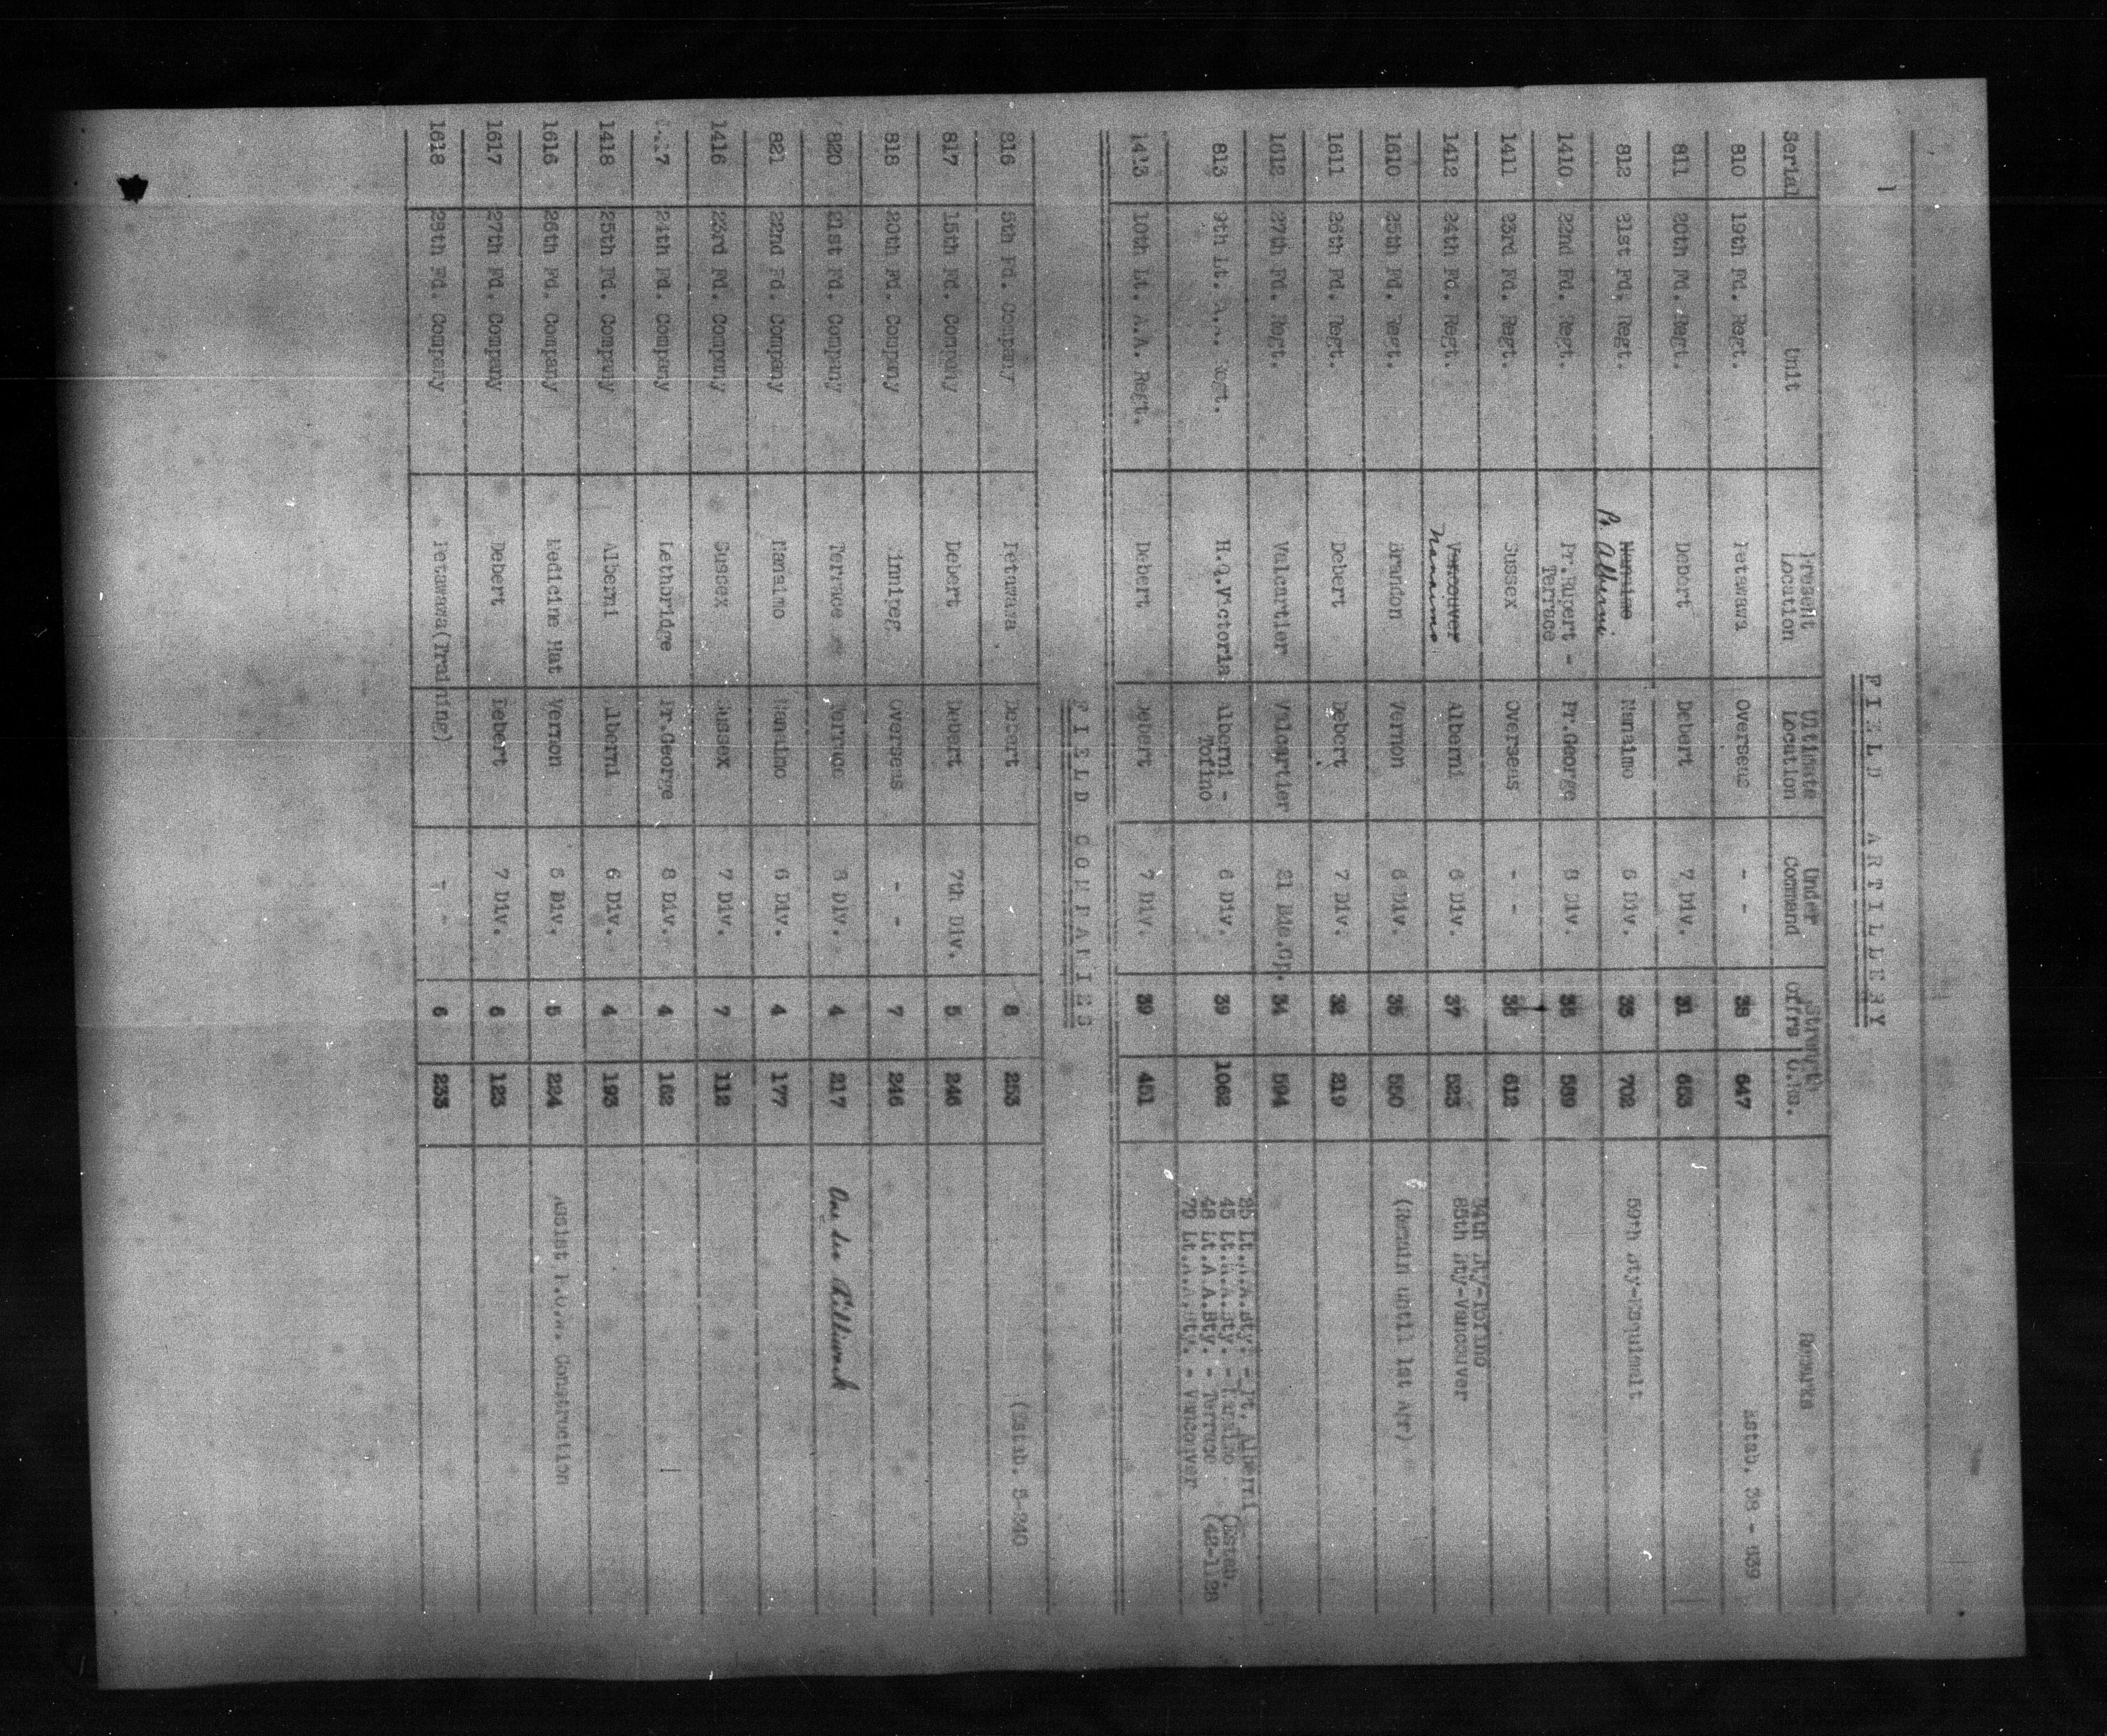 FIELD ARTILLERY
Serial Unit Present Location Ultimate Location Under Command Strength Offrs O.Rs. Remarks
810 19th Fd. Regt. Petawawa Overseas - - 38 647 Estab. 38 - 639
811 20th Fd. Regt. Debert Debert 7 Div. 31 653
812 21st Fd. Regt. Nanaimo Pt. Alberni Nanaimo 6 Div. 33 702 59th Bty-Esquimalt
1410 22nd Fd. Regt. Pr.Rupert - Terrace Pr.George 8 Div. 589
1411 23rd Fd. Regt. Sussex Overseas - - 612
1412 24th Fd. Regt. Vancouver Nanaimo Alberni 6 Div. 37 523 34th Bty-Tofino
85th Bty-Vancouver
1610 25th Fd. Regt. Brandon Vernon 6 Div. 35 550 (Remain until 1st Apr)
1611 26th Fd. Regt. Debert Debert 7 Div. 32 219
1612 27th Fd. Regt. Valcartier Valcartier 21 Bde.Gp. 34 594
813 9th Lt. A.A. Regt. H.Q.Victoria Alberni - Tofino 6 Div. 39 1062 Lt.A.A.Bty. - Pt. Alberni
45 Lt.A.A.Bty. - Nanaimo (Estab.
48 Lt.A.A.Bty. - Terrace (42-1128
Lt.A.A.Bty. - Vancouver
1413 10th Lt. A.A. Regt. Debert Debert 7 Div. 39 451
FIELD COMPANIES
816 5th Fd. Company Petawawa Debert 8 253 (Estab. 5-240
817 15th Fd. Company Debert Debert 7th Div. 5 246
818 20th Fd. Company Winnipeg Overseas - - 7 246
820 21st Fd. Company Terrace Terrace 8 Div. 4 217 One Sec Chilliwack
821 22nd Fd. Company Nanaimo Nanaimo 6 Div. 4 177
1416 23rd Fd. Company Sussex Sussex 7 Div. 7 112
24th Fd. Company Lethbridge Pr.George 8 Div. 4 162
1418 25th Fd. Company Alberni Alberni 6 Div. 4 193
1616 26th Fd. Company Medicine Hat Vernon 6 Div. 5 224 Assist P.O.W. Construction
1617 27th Fd. Company Debert Debert 7 Div. 6 123
1618 28th Fd. Company Petawawa(Training) - - 6 233